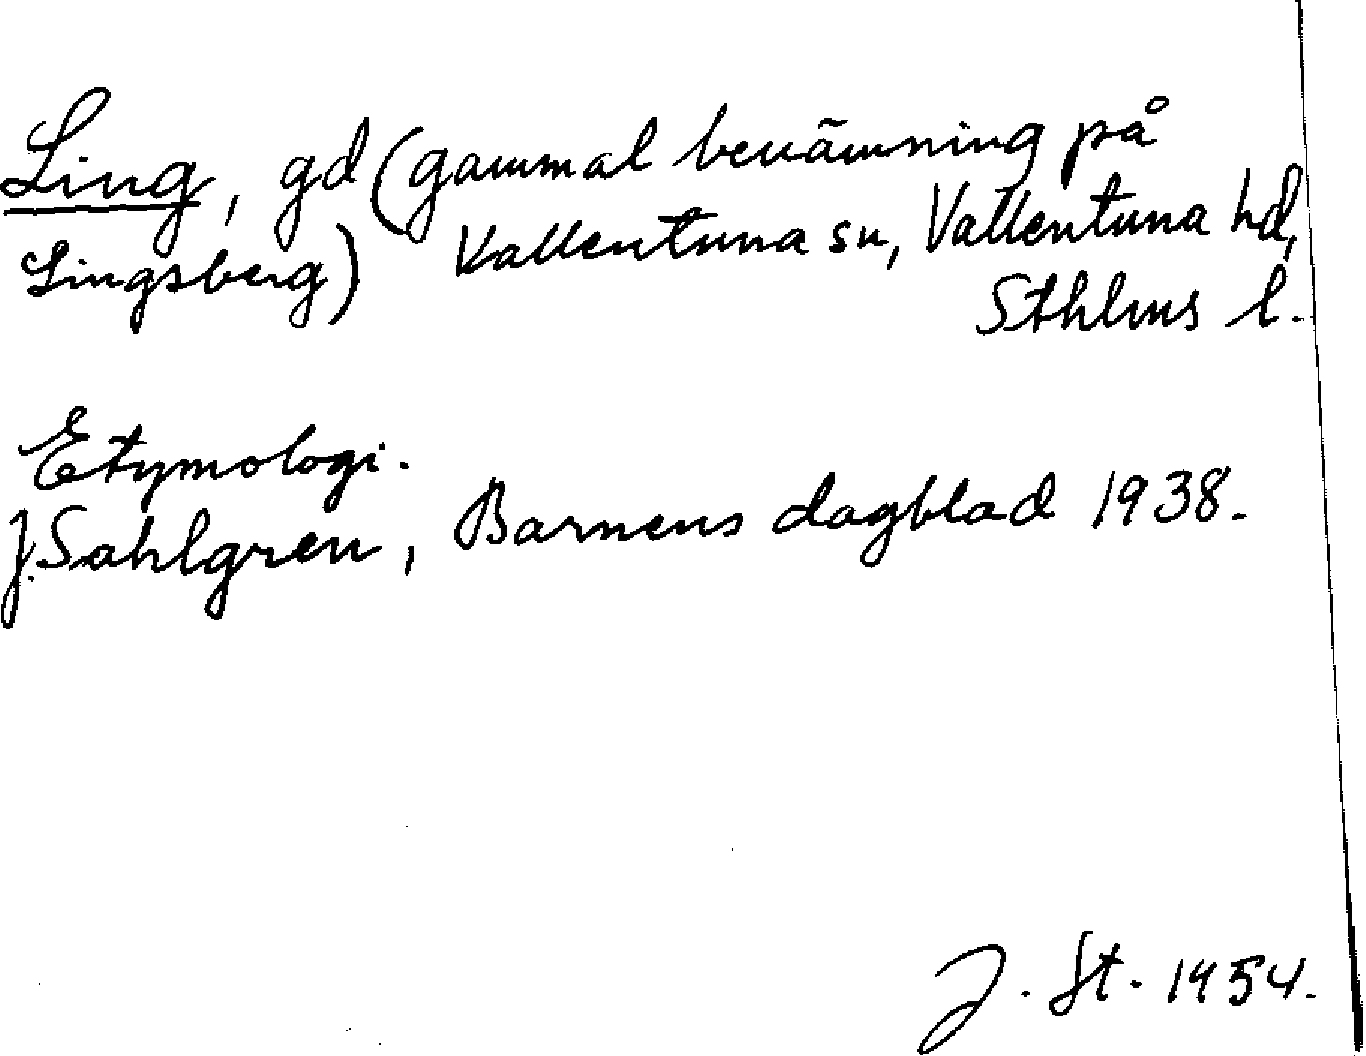 Ling, gd (gammal benämning på
Lingsberg) Vallentuna sn, Vallentuna hd,
Sthlms l.
Etymologi.
J. Sahlgren, Barnens dagblad 1938.
J. St. 1954.